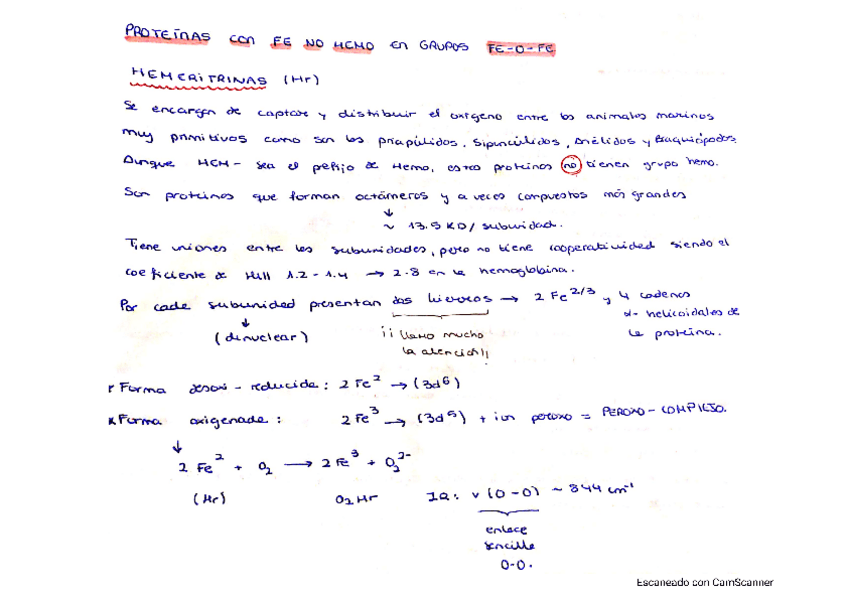 PROTEÍNAS CON FE NO HEMO EN GRUPOS FE-O-FE
HEMERITRINAS (Hr)
Se encargan de captar y distribuir el oxígeno entre los animales marinos
muy primitivos como son los priapúlidos, sipuncúlidos, anélidos y braquiópodos.
Aunque HEM- sea el prefijo de Hemo, estas proteínas no tienen grupo hemo.
Son proteínas que forman octámeros y a veces compuestos más grandes
↓
~ 13.5 KD/ subunidad.
Tiene uniones entre las subunidades, pero no tiene cooperatividad siendo el
coeficiente de Hill 1.2 - 1.4 → 2.8 en la hemoglobina.
Por cada subunidad presentan dos hierros → 2 Fe 2/3 y 4 cadenas
↓
(dinuclear)
¡¡ llamo mucho
la atención!!
α- helicoidales de
la proteína.
Forma desoxi - reducida: 2 Fe 2 → (3d6)
Forma oxigenada: 2 Fe 3 → (3d5) + ion peroxo = PEROXO - COMPLEJO.
↓
2 Fe 2 + O2 → 2 Fe 3 + O2 2-
(Hr) O2Hr IR: ν (O-O) ~ 844 cm-1
enlace
sencillo
O-O.
Escaneado con CamScanner